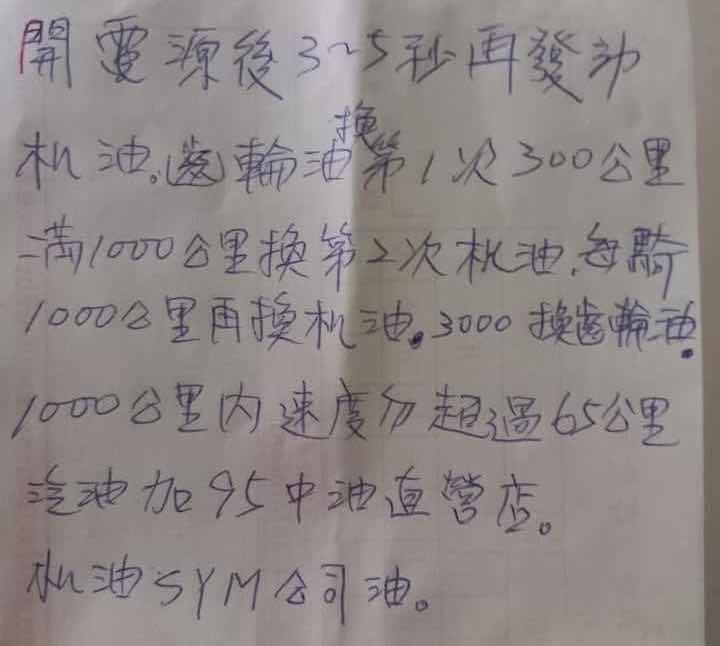 開電源後3~5秒再發动
机油。齒輪油換第1次300公里
滿1000公里換第2次机油,每騎
1000公里再換机油。3000換齒輪油.
1000公里内速度勿超過65公里
汽油加95中油直營店。
机油SYM公司油。